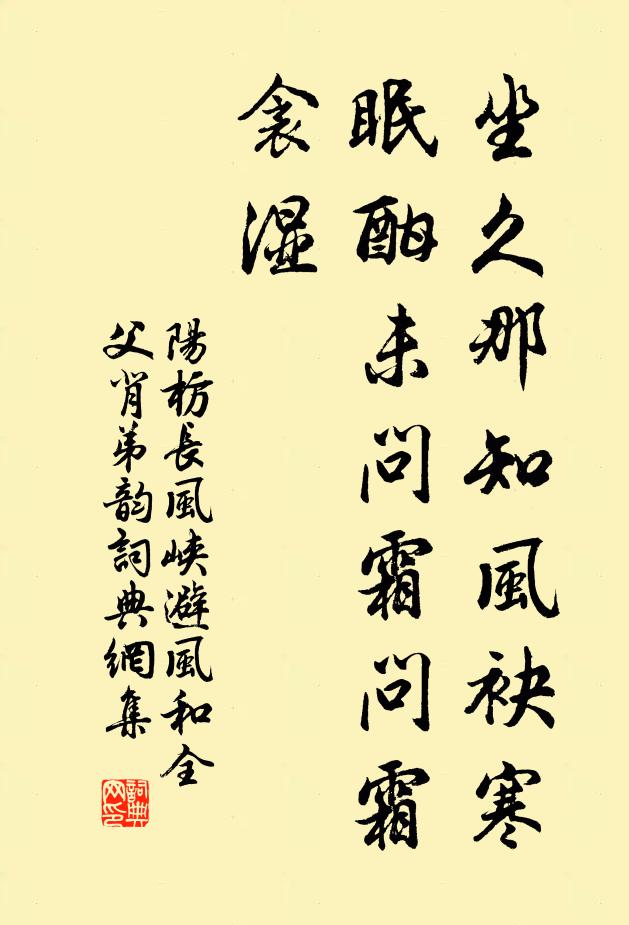 坐久那知風袂寒
眠酣未問霜問霜
衾湿
陽枋長風峡避風和全
父肖弟韵詞典網集
詞典
网印